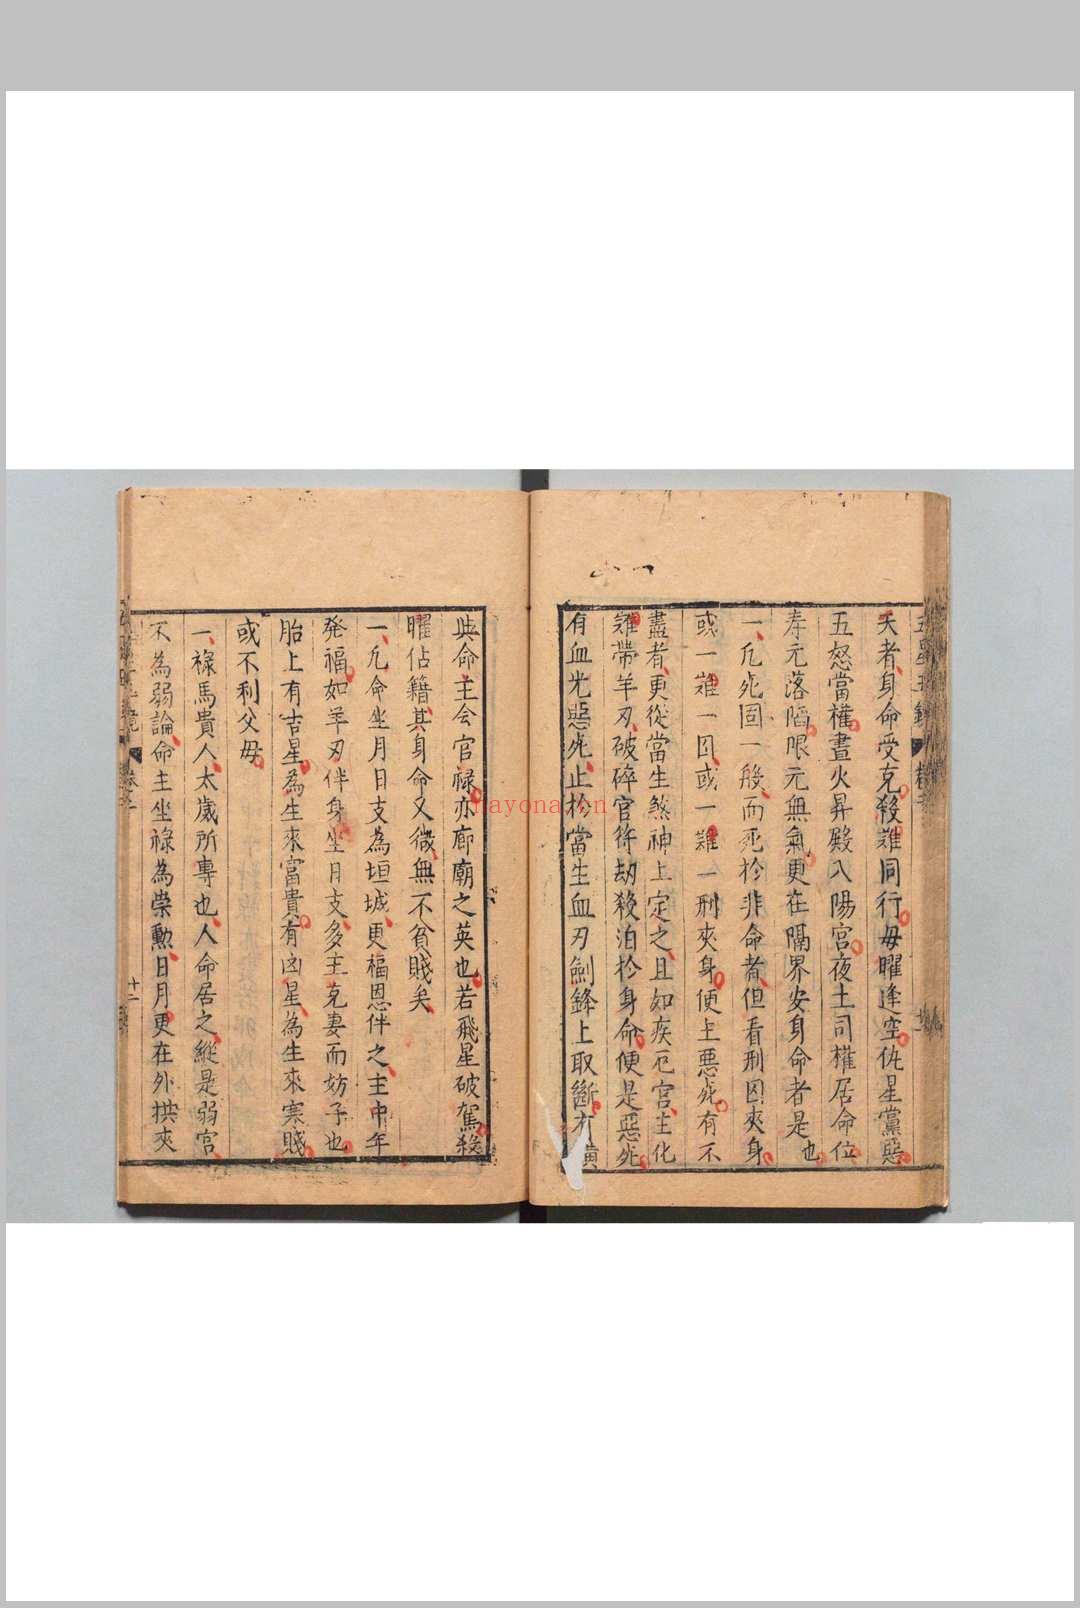 夭者身命受克殺難同行毋曜逢空仇星黨惡
五怒當權晝火昇殿入陽宮夜土司權居命位
寿元落陷限元無氣更在隔界安身命者是也
一凢死固一般而死於非命者但看刑囚夾身
或一難一囚或一難一刑夾身便主惡死有不
盡者更從當生煞神上定之且如疾厄宮主化
難帶羊刃破碎官符刼殺泊於身命便是惡死
有血光惡死止於當生血刃劍鋒上取斷
與命主会官禄亦廊廟之英也若飛星破駕殺
曜佔籍其身命又微無不貧賤矣
一凢命坐月日支為垣城更福恩伴之主中年
発福如羊刃伴身坐月支多主克妻而妨子也
胎上有吉星為生來富貴有凶星為生來寒賤
或不利父母
一禄馬貴人太歲所專也人命居之縱是弱宮
不為弱論命主坐禄為崇勲日月更在外拱夾
十二
nayona.cn